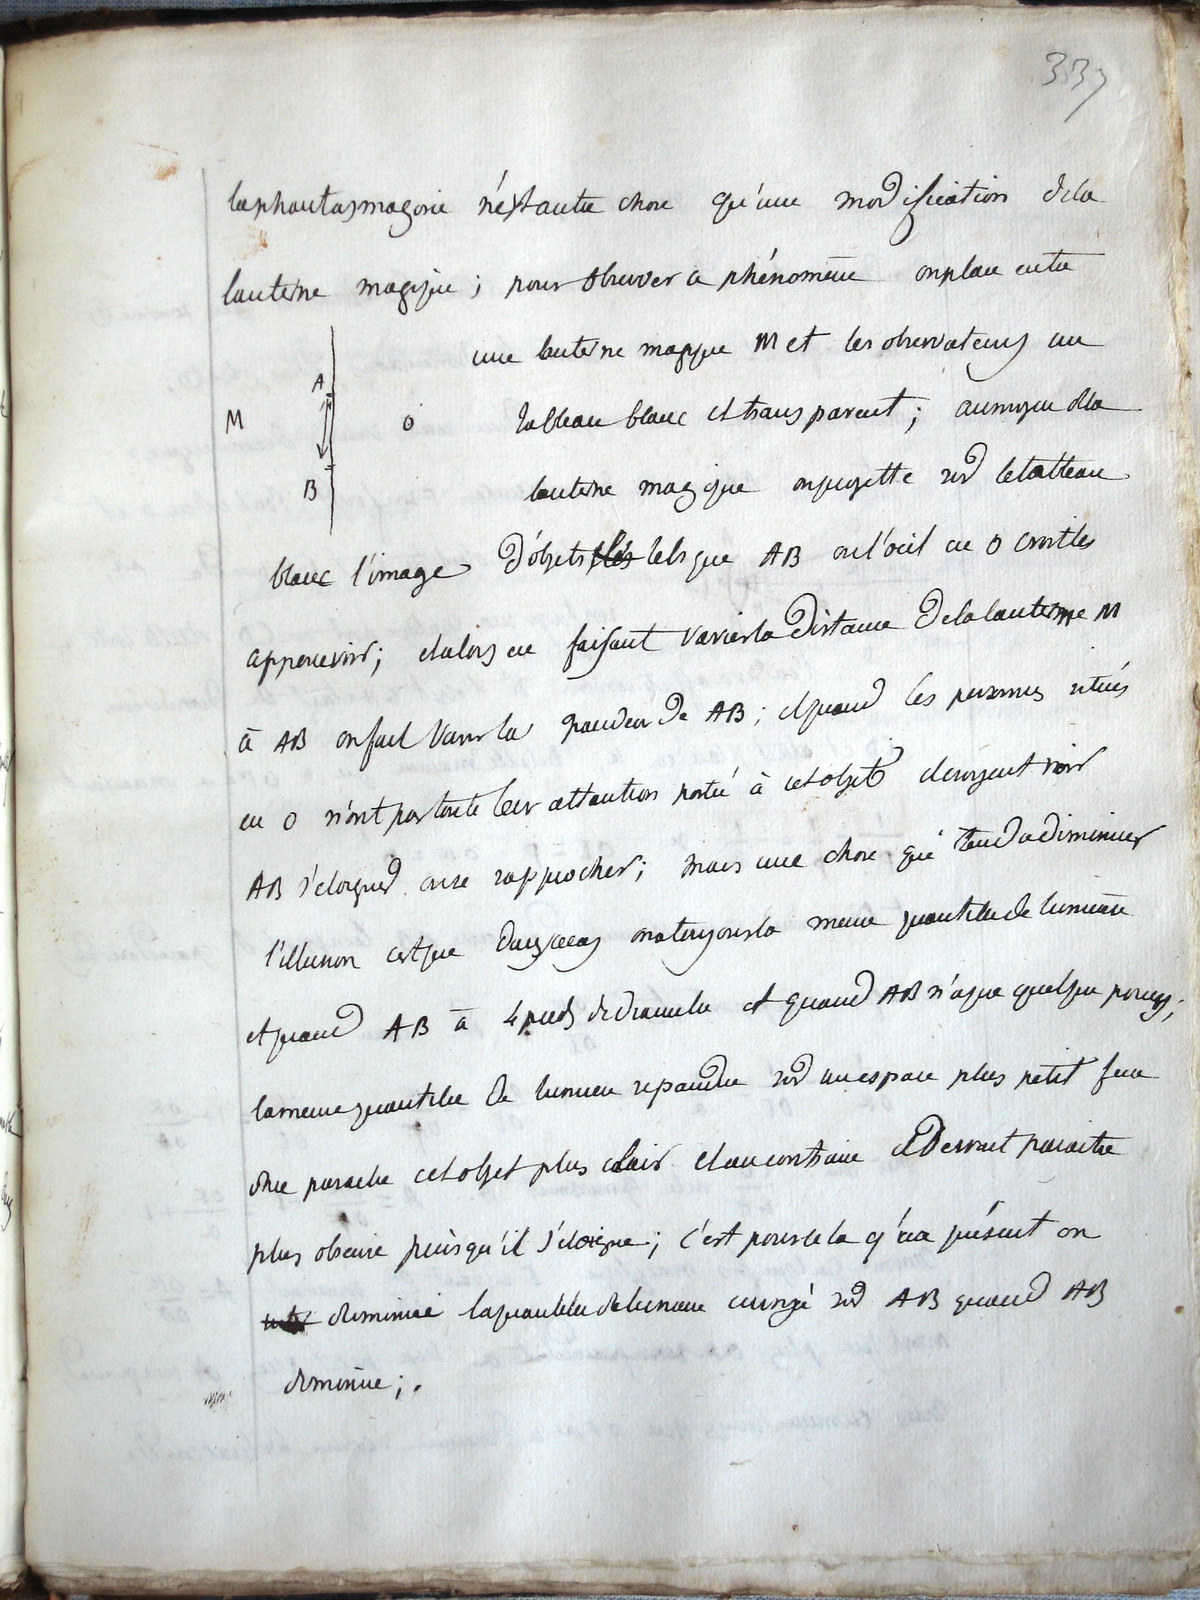 337
la phantasmagorie n'est autre chose qu'une modification de la
lanterne magique ; pour observer ce phénomène on place entre
une lanterne magique M et les observateurs un
A
M
O
tableau blanc et transparent ; au moyen de la
B
lanterne magique on projette sur le tableau
blanc l'image d'objets tels que AB ou l'œil en O croit les
appercevoir ; et alors en faisant varier la distance de la lanterne M
à AB on fait varier la grandeur de AB ; et quand les personnes situés
en O n'ont pas toute leur attention portée à cet objet croyent voir
AB s'eloigner ou se rapprocher ; mais une chose qui tend a diminuer
l'illusion est que dans ce cas on a toujours la meme quantité de lumière
et quand AB à 4 pieds de diametre et quand AB n'a que quelque pouces ;
la meme quantité de lumiere repandue sur un espace plus petit fera
donc paraitre cet objet plus clair et au contraire il devrait paraitre
plus obscure puisqu'il s'eloigne ; c'est pour cela qu'a présent on
diminue la quantité de lumiere envoyé sur AB quand AB
diminue ; .